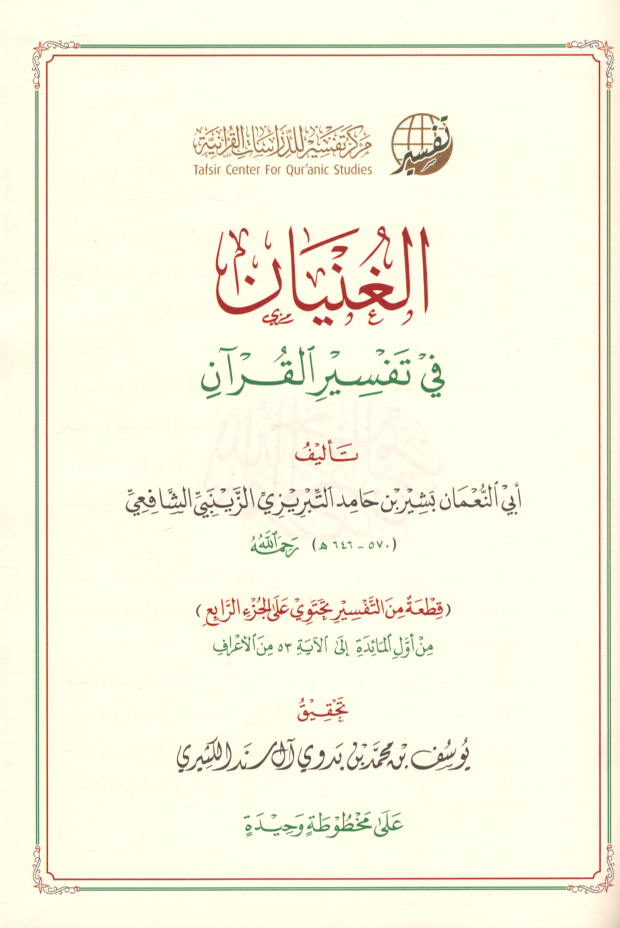 مركز تفسير للدراسات القرآنية
تفسير
Tafsir Center For Qur'anic Studies
الغُنْيَان
فِي تَفْسِيرِ القُرْآنِ
تَأْلِيفُ
أَبِي النُّعْمَان بَشِيرِ بْنِ حَامِدِ التِّبْرِيزِيِّ الزَّيْنَبِيِّ الشَّافِعِيِّ
(٥٧٠ - ٦٤٦ هـ) رَحِمَهُ اللَّهُ
(قِطْعَةٌ مِنَ التَّفْسِيرِ تَحْتَوِي عَلَى الجُزْءِ الرَّابِعِ)
مِنْ أَوَّلِ المَائِدَةِ إِلَى الآيَةِ ٥٣ مِنَ الأَعْرَافِ
تَحْقِيقُ
يُوسُف بْن مُحَمَّد بْن بَدَوِي آل سَنَد الكَثِيرِي
عَلَى مَخْطُوطَةٍ وَحِيدَةٍ